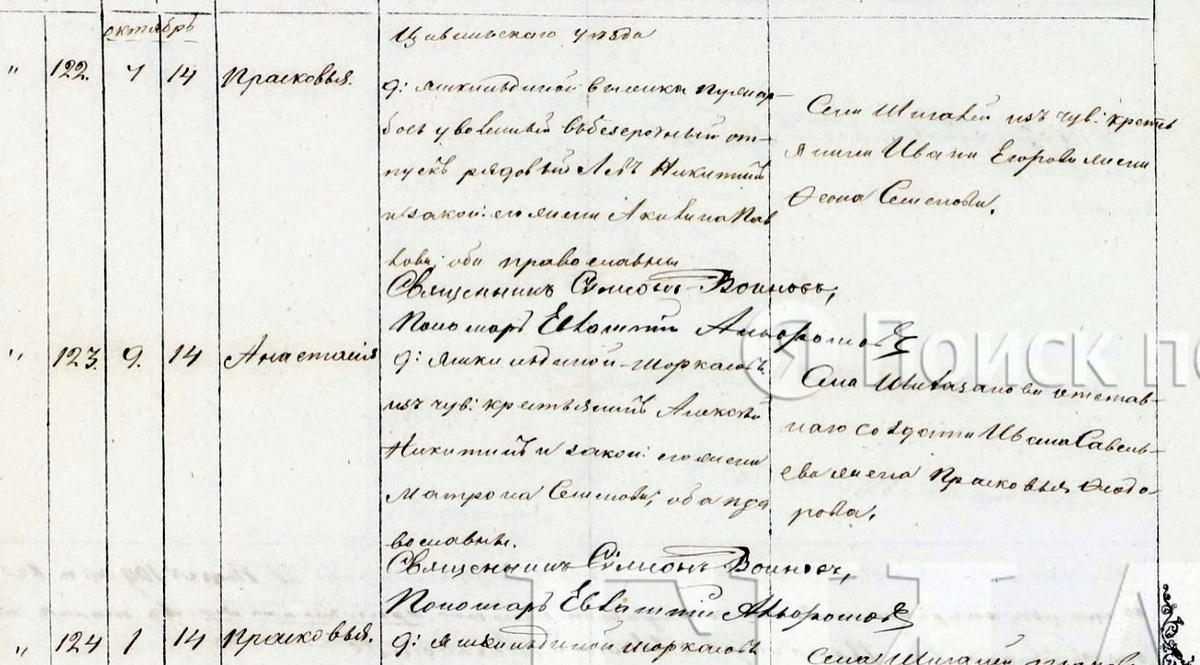 октябрь
Цивильскаго уѣзда
" 122. 7 14 Прасковья.
д: Яшкильдиной выселка Пулянр-
бось уволенный въ безсрочный от-
пускъ рядовый Левъ Никитинъ
и закон: его жена Акилина Пав
лова; оба православны
Села Шигалей изъ чув: кресть
янина Ивана Егорова жена
Ѳеона Семенова.
Священникъ Симеонъ Воиновъ,
Пономарь Евѳимій
" 123. 9. 14 Анастасія
д: Яшкильдиной-
изъ чув: крестьянинъ Алексѣй
Никитинъ и закон: его жена
Матрона Семенова; оба пра
вославны.
Села Шибазанова отстав-
наго солдата Ивана Савель-
ева жена Прасковья Ѳеодо-
рова.
Священникъ Симеонъ Воиновъ,
Пономарь Евѳимій
" 124 1 14 Прасковья.
д: Яшкильдиной
Села Шигалей
Поиск по